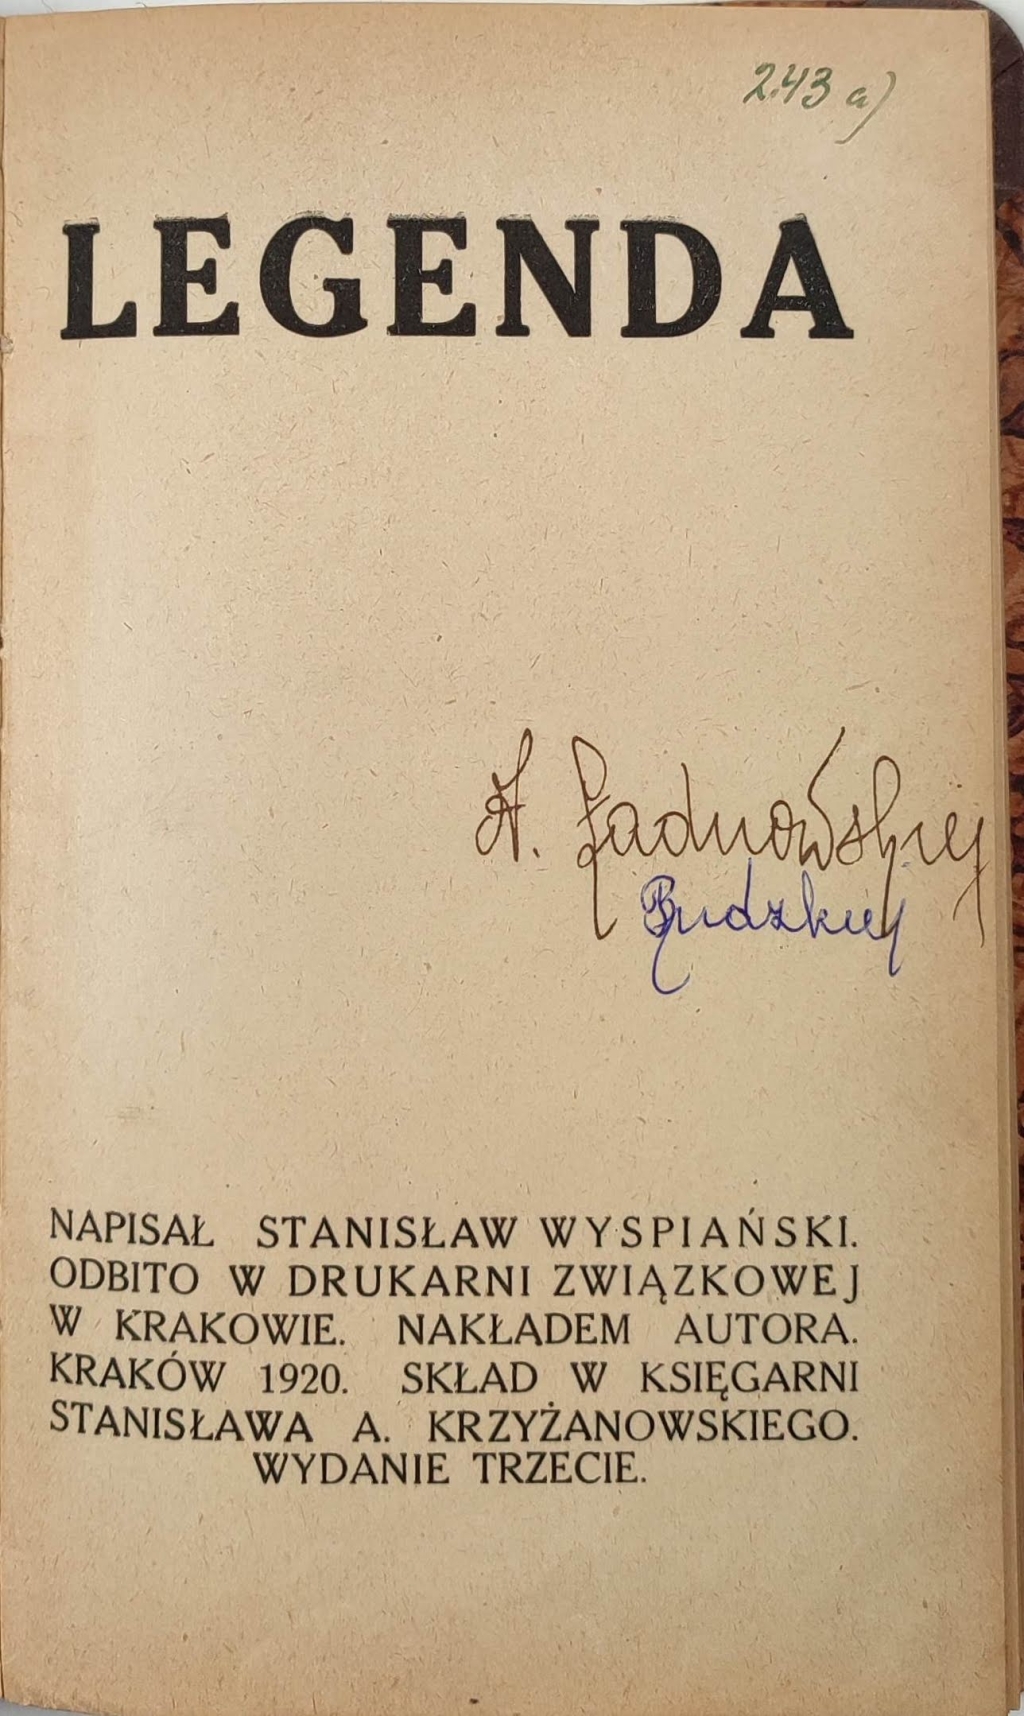 2.43 a)
LEGENDA
A. Ładnowskiej
Rudzkiej
NAPISAŁ STANISŁAW WYSPIAŃSKI.
ODBITO W DRUKARNI ZWIĄZKOWEJ
W KRAKOWIE. NAKŁADEM AUTORA.
KRAKÓW 1920. SKŁAD W KSIĘGARNI
STANISŁAWA A. KRZYŻANOWSKIEGO.
WYDANIE TRZECIE.